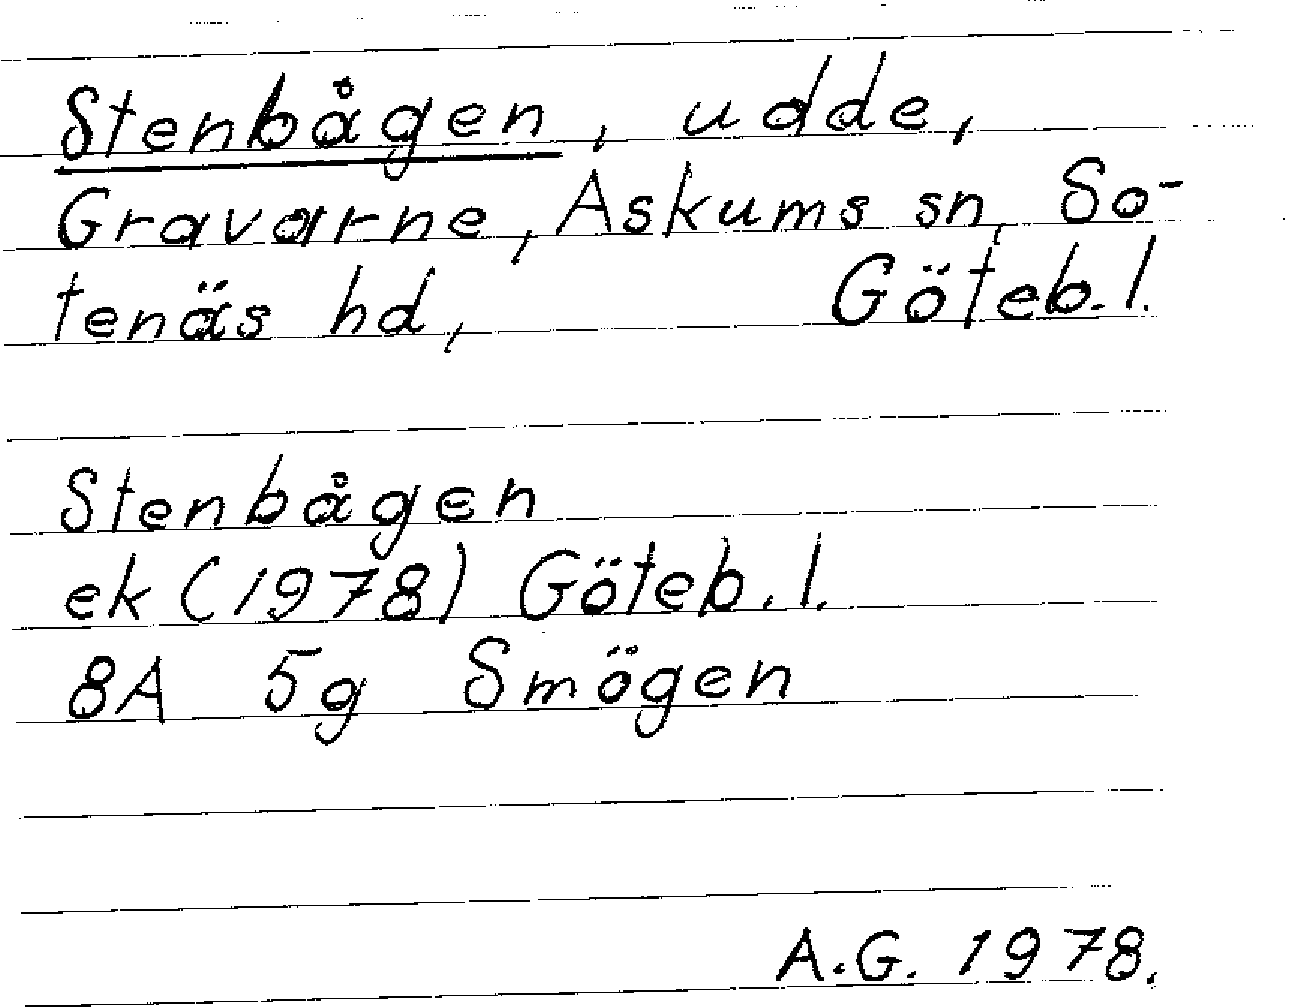 Stenbågen, udde,
Gravarne, Askums sn, So-
tenäs hd, Göteb. l.
Stenbågen
ek (1978) Göteb. l.
8A 5g Smögen
A.G. 1978.